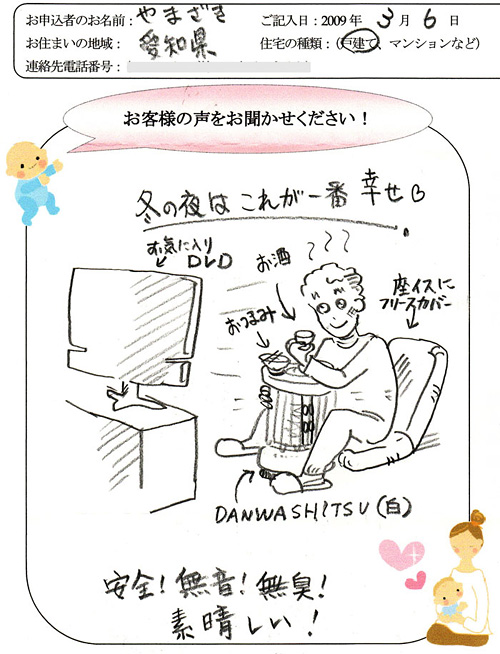 お申込者のお名前：やまざき
ご記入日：2009年 3月 6日
お住まいの地域：愛知県
住宅の種類：(戸建て、マンションなど)
連絡先電話番号：
お客様の声をお聞かせください！
冬の夜はこれが一番幸せ
お気に入り
DVD
お酒
おつまみ
座イスに
フリースカバー
DANWASHITSU(白)
安全！無音！無臭！
素晴しい！